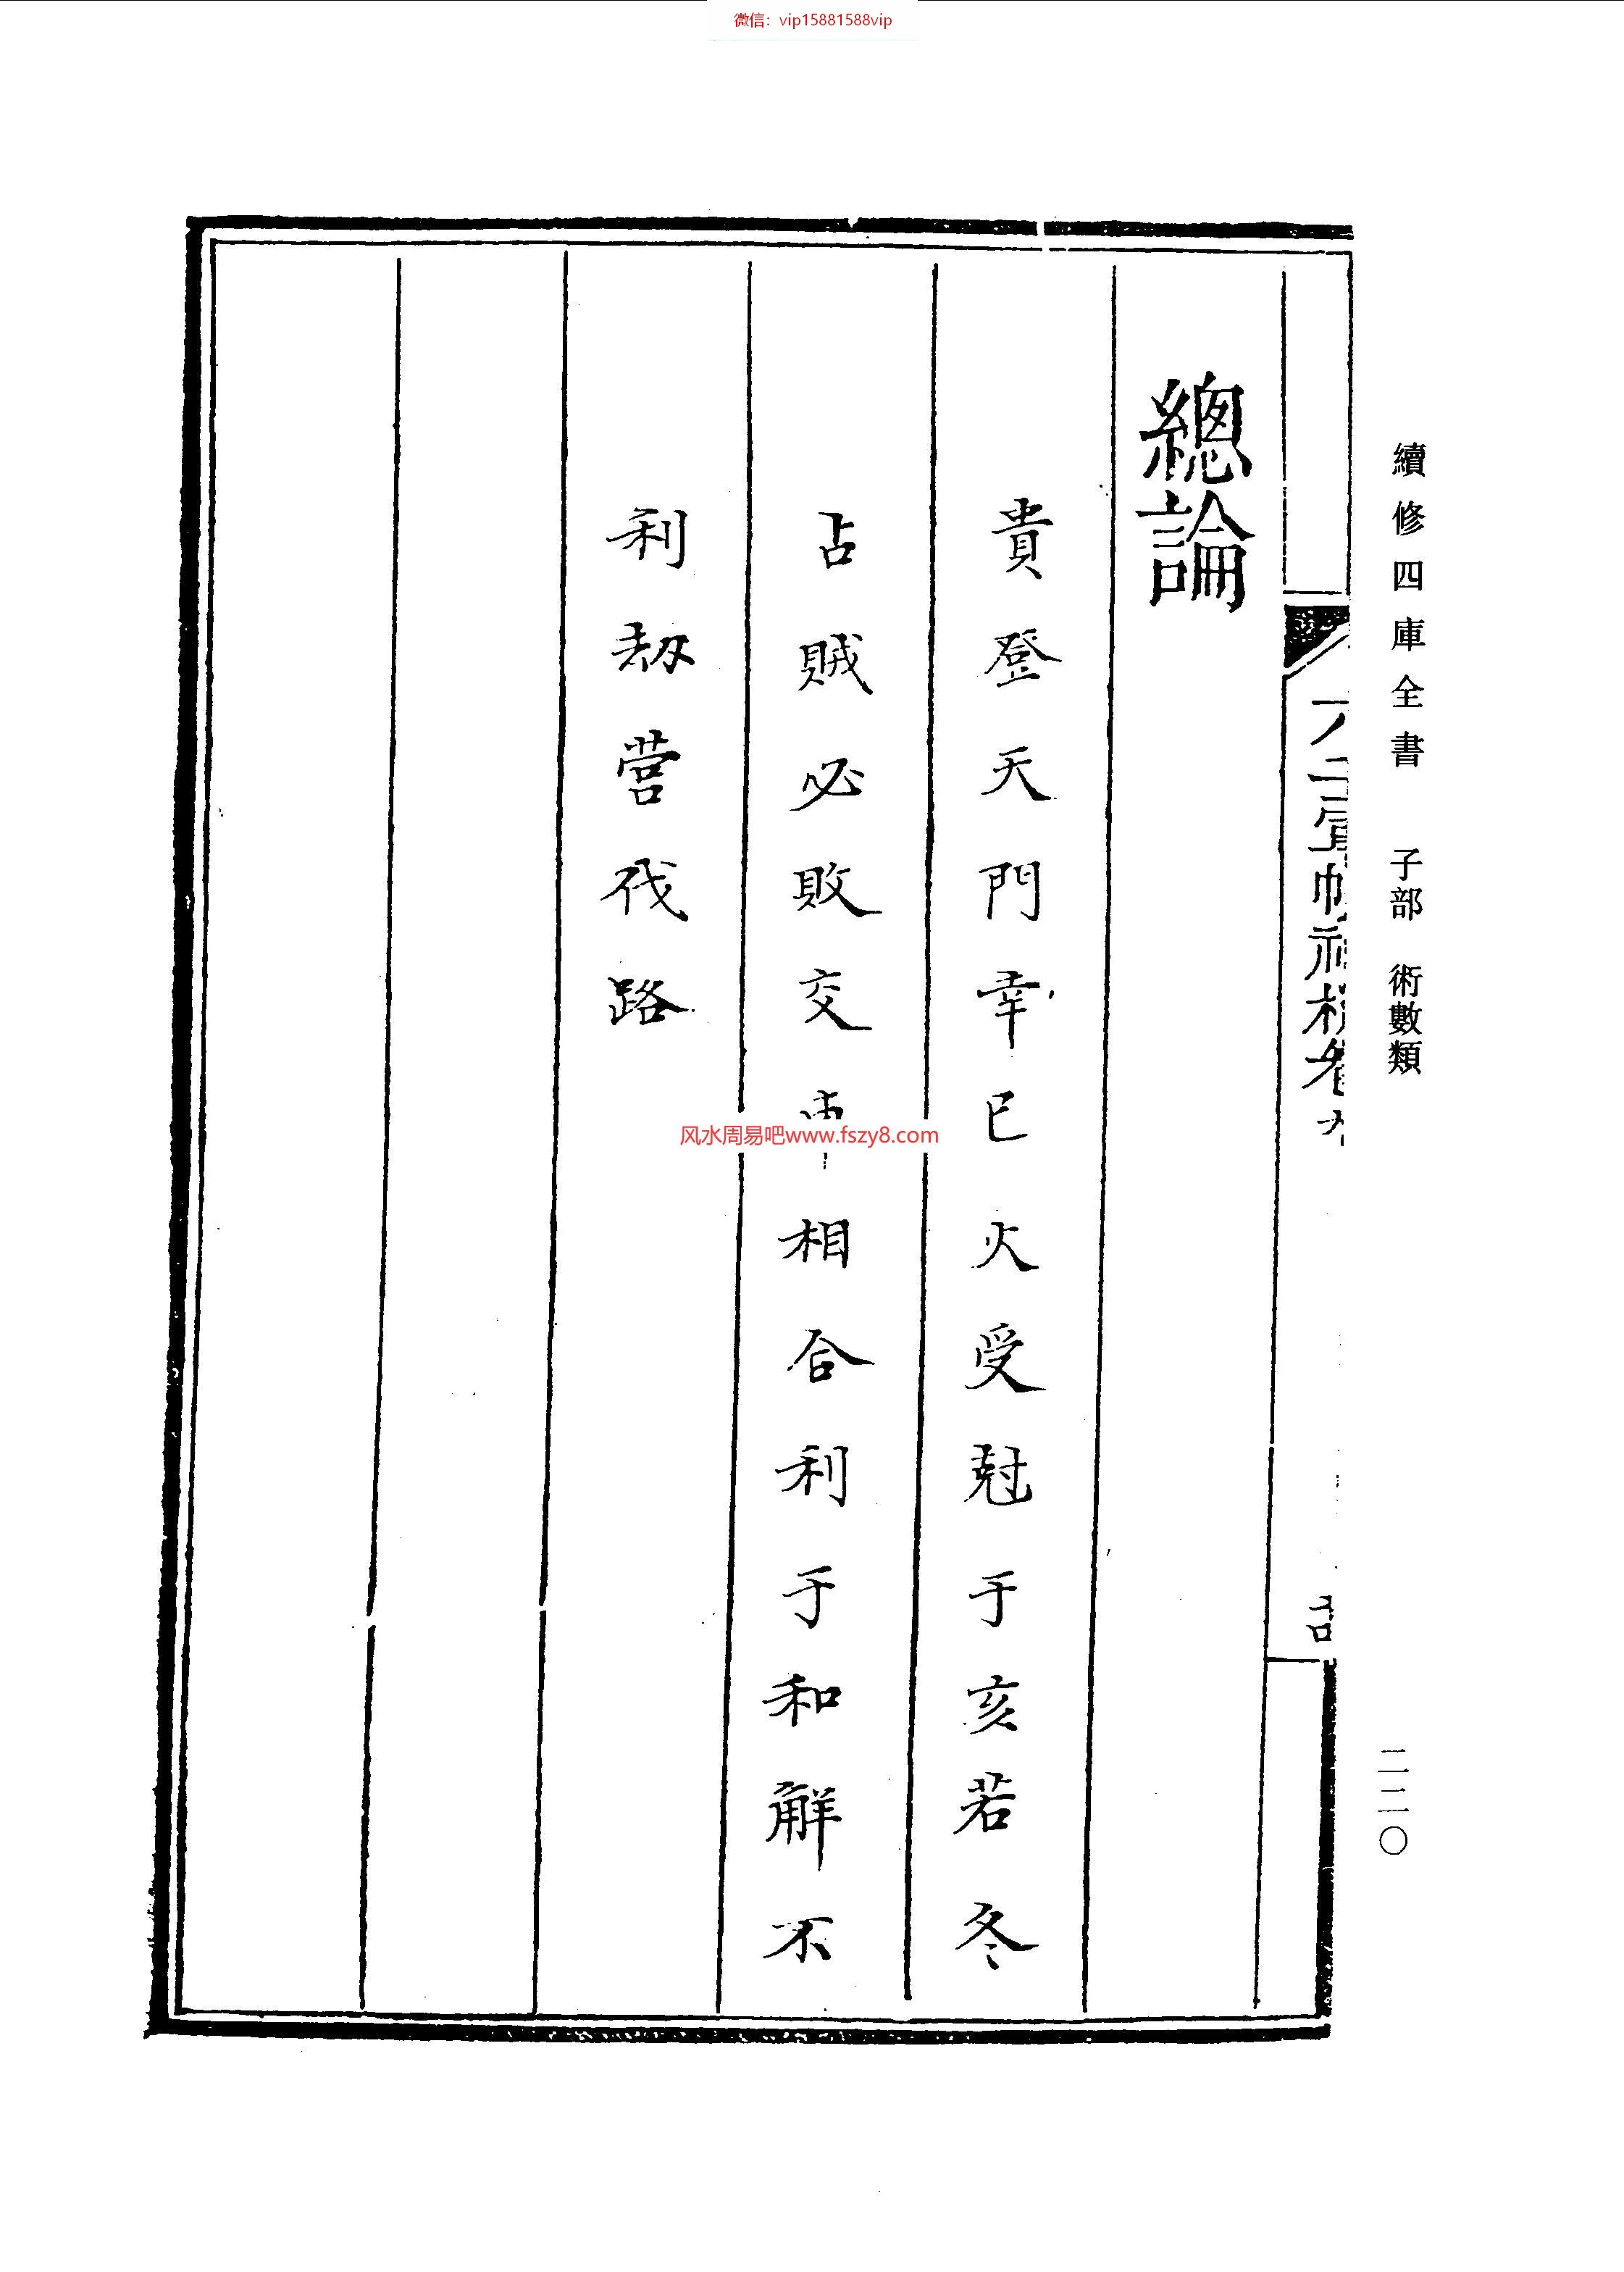 微信：vip15881588vip
續修四庫全書　子部　術數類
二二〇
六壬軍帳神機卷
總論
貴登天門幸巳火受尅于亥若冬
占賊必敗交車相合利于和解不
利刼营伐路
风水周易吧www.fszy8.com